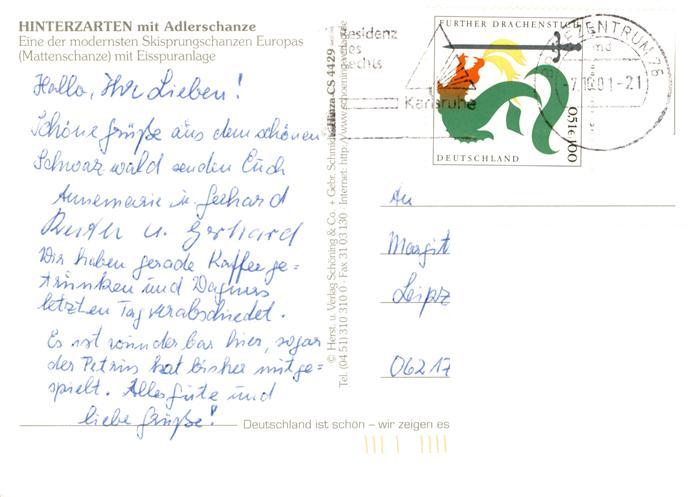 HINTERZARTEN mit Adlerschanze
Eine der modernsten Skisprungschanzen Europas
(Mattenschanze) mit Eisspuranlage
Hallo, Ihr Lieben!
Schöne Grüße aus dem schönen
Schwarzwald senden Euch
Annemarie u. Gerhard
Ruth u. Gerhard
Wir haben gerade Kaffee ge=
trunken und Dagmars
letzten Tag verabschiedet.
Es ist wunderbar hier, sogar
der Petrus hat bisher mitge=
spielt. Alles Gute und
liebe Grüße!
Deutschland ist schön – wir zeigen es
© Herst. u. Verlag Schöning & Co. + Gebr. Schmidt
Tel. (04 51) 310 310 0 · Fax 31 03 130 Internet: http://www.schoening-verlag.de
CS 4429
Residenz
des
Rechts
Karlsruhe
FURTHER DRACHENSTICH
DEUTSCHLAND
0,51€ 100
BRIEFZENTRUM 76
-7.10.01-21
An
Margit
Leipz
06217